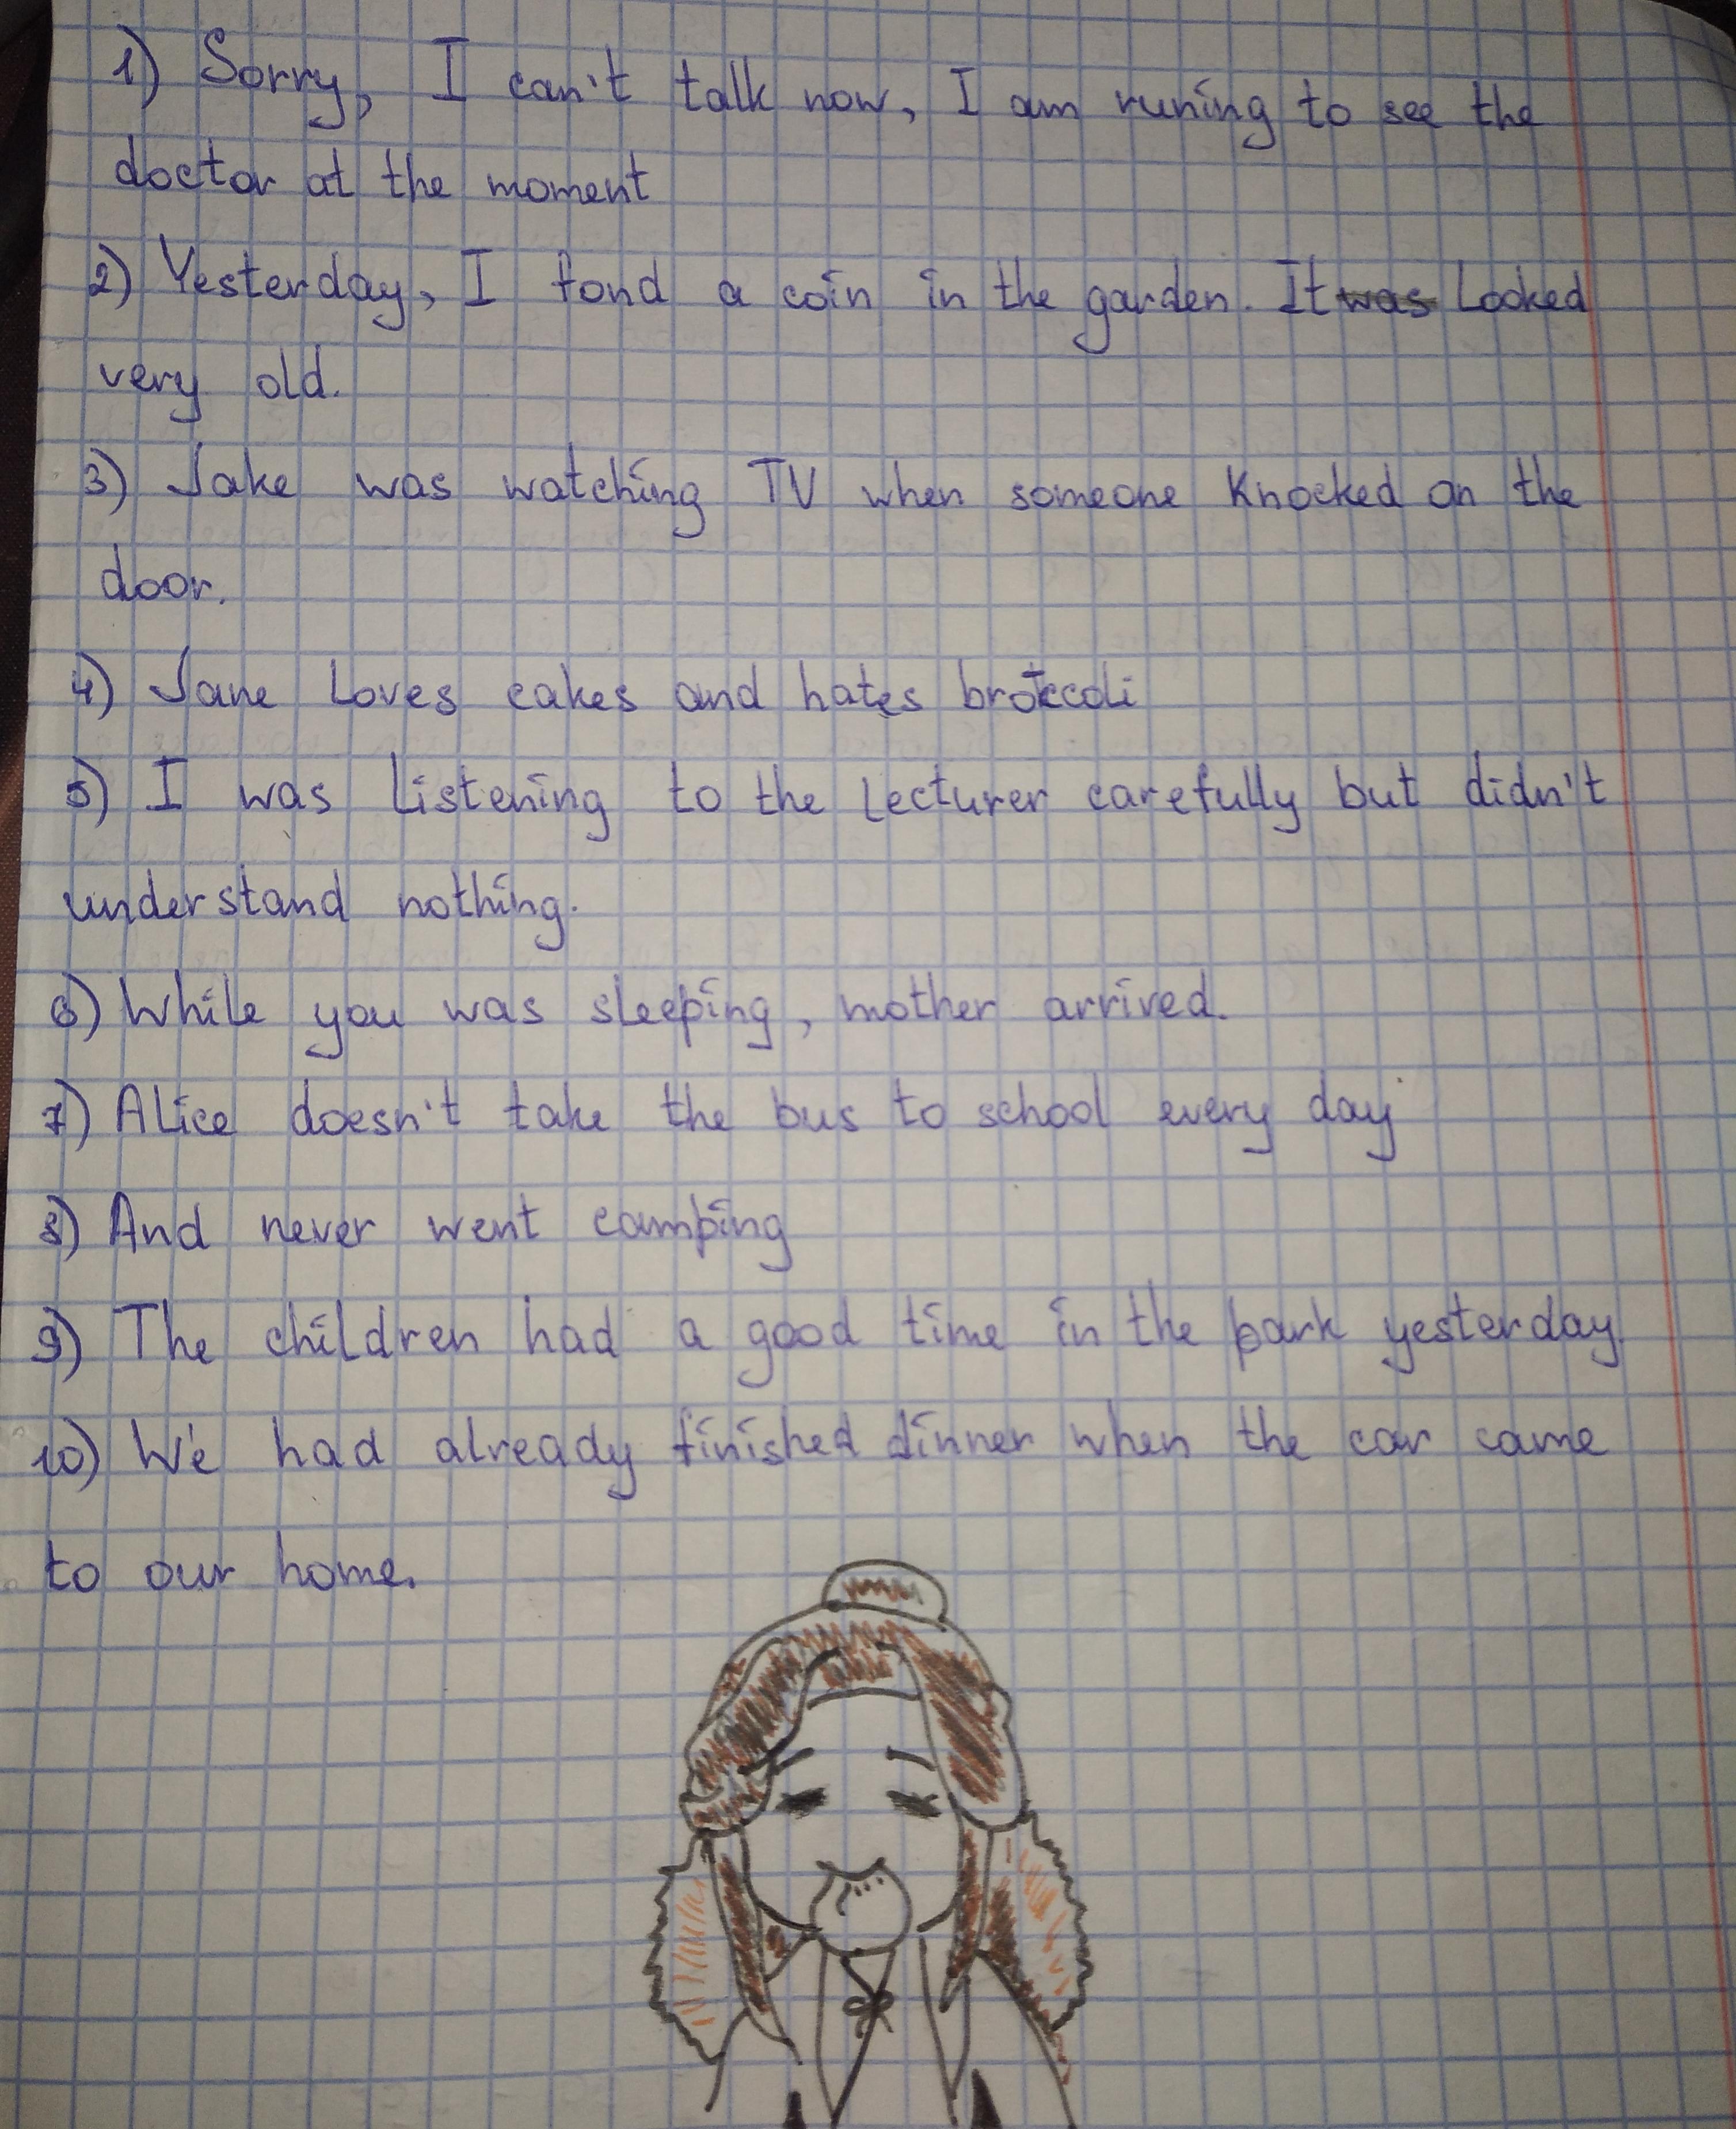 1) Sorry, I can't talk now, I am runing to see the
doctor at the moment
2) Yesterday, I fond a coin in the garden. It was Looked
very old.
3) Jake was watching TV when someone Knocked on the
door.
4) Jane Loves cakes and hates broccoli
5) I was Listening to the Lecturer carefully but didn't
understand nothing.
6) While you was sleeping, mother arrived.
7) Alice doesn't take the bus to school every day
8) And never went camping
9) The children had a good time in the park yesterday.
10) We had already finished dinner when the car came
to our home.